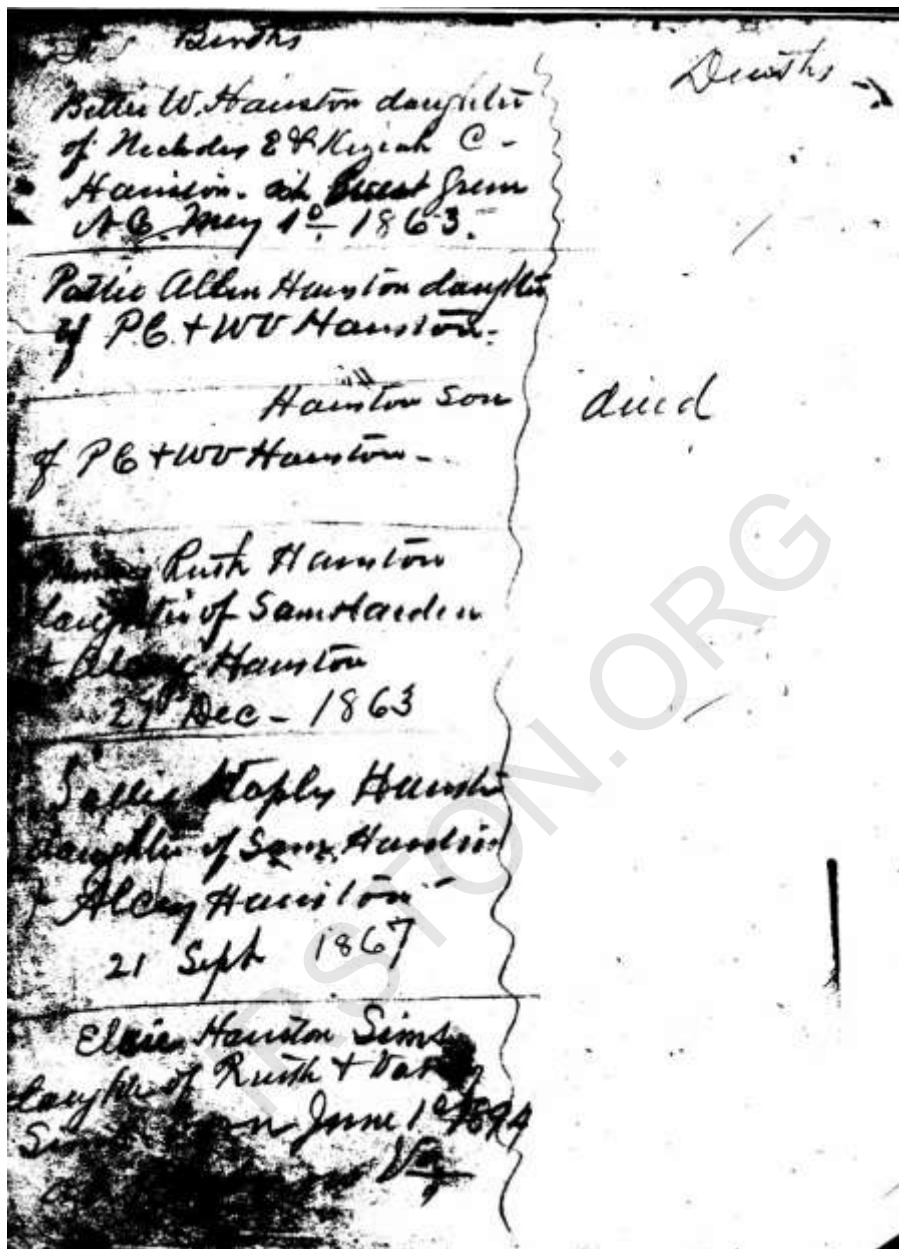 Births
Deaths
Bettie W. Hairston daughter
of Nicholas E & Keziah C -
Hairston. at Sweet Green
N C. May 1o. 1863.
Pattie Allen Hairston daughter
of P.C. + WV Hairston.
Hairston Son
died
of P C + WV Hairston -
Ruth Hairston
daughter of Sam Harden
+ Alcey Hairston
27 Dec - 1863
Sallie Staply Hairston
daughter of Sam. Hardin
Alcey Hairston -
21 Sept 1867
Elsie Hairston Sims
daughter of Ruth +
June 1o 1894
Va
RSTON.ORG